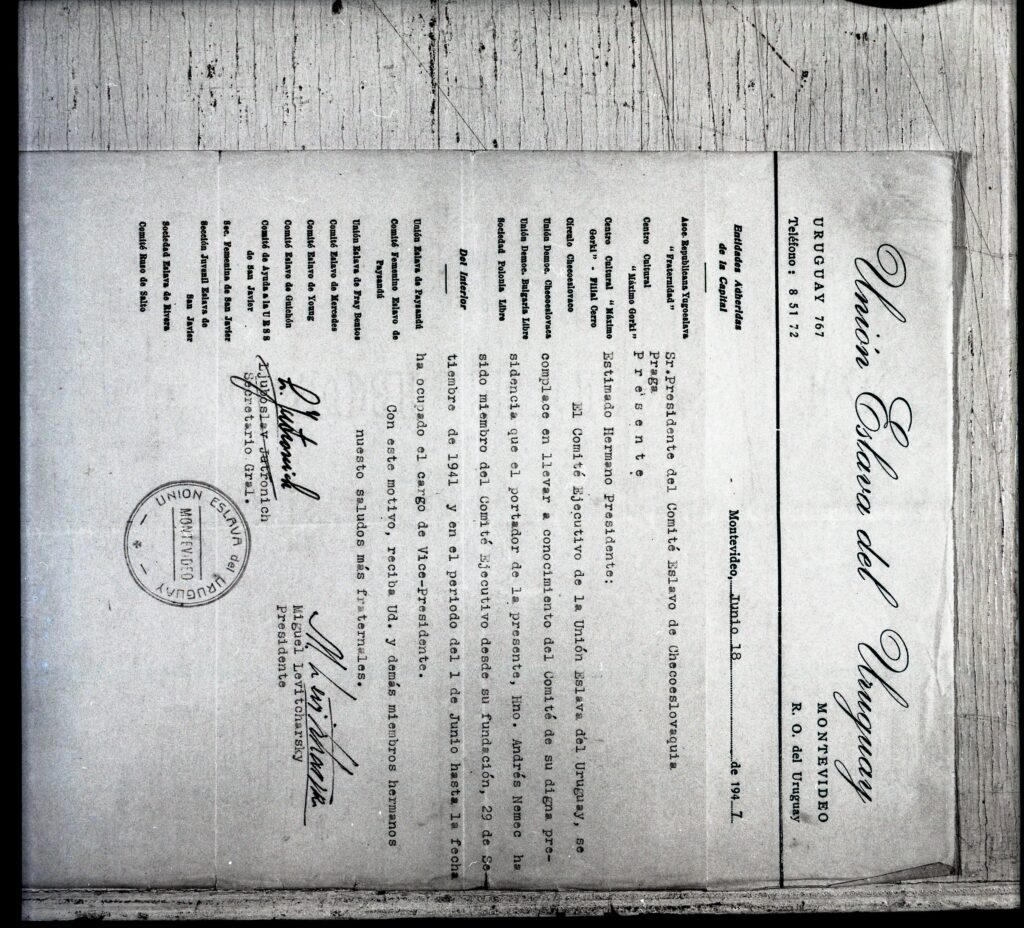 Unión Eslava del Uruguay
URUGUAY 767
Teléfono: 8 51 72
MONTEVIDEO
R. O. del Uruguay
Montevideo, Junio 18 de 1947
Entidades Adheridas
de la Capital
Asoc. Republicana Yugoeslava
"Fraternidad"
Centro Cultural
"Máximo Gorki"
Centro Cultural "Máximo
Gorki" - Filial Cerro
Círculo Checoeslovaco
Unión Democ. Checoeslovaca
Unión Democ. Bulgaria Libre
Sociedad Polonia Libre
Del Interior
Unión Eslava de Paysandú
Comité Femenino Eslavo de
Paysandú
Unión Eslava de Fray Bentos
Comité Eslavo de Mercedes
Comité Eslavo de Young
Comité Eslavo de Guichón
Comité de Ayuda a la URSS
de San Javier
Sec. Femenina de San Javier
Sección Juvenil Eslava de
San Javier
Sociedad Eslava de Rivera
Comité Ruso de Salto
Sr.Presidente del Comité Eslavo de Checoeslovaquia
Praga
P r e s e n t e .
Estimado Hermano Presidente:
El Comité Ejecutivo de la Unión Eslava del Uruguay, se
complace en llevar a conocimiento del Comité de su digna pre-
sidencia que el portador de la presente, Hno. Andrés Nemec ha
sido miembro del Comité Ejecutivo desde su fundación, 29 de Se-
tiembre de 1941 y en el periodo del 1 de Junio hasta la fecha
ha ocupado el cargo de Vice-Presidente.
Con este motivo, reciba Ud. y demás miembros hermanos
nuesto saludos más fraternales.
Ljuboslav Jutronich
Secretario Gral.
Miguel Levitcharsky
Presidente
UNION ESLAVA del URUGUAY
MONTEVIDEO